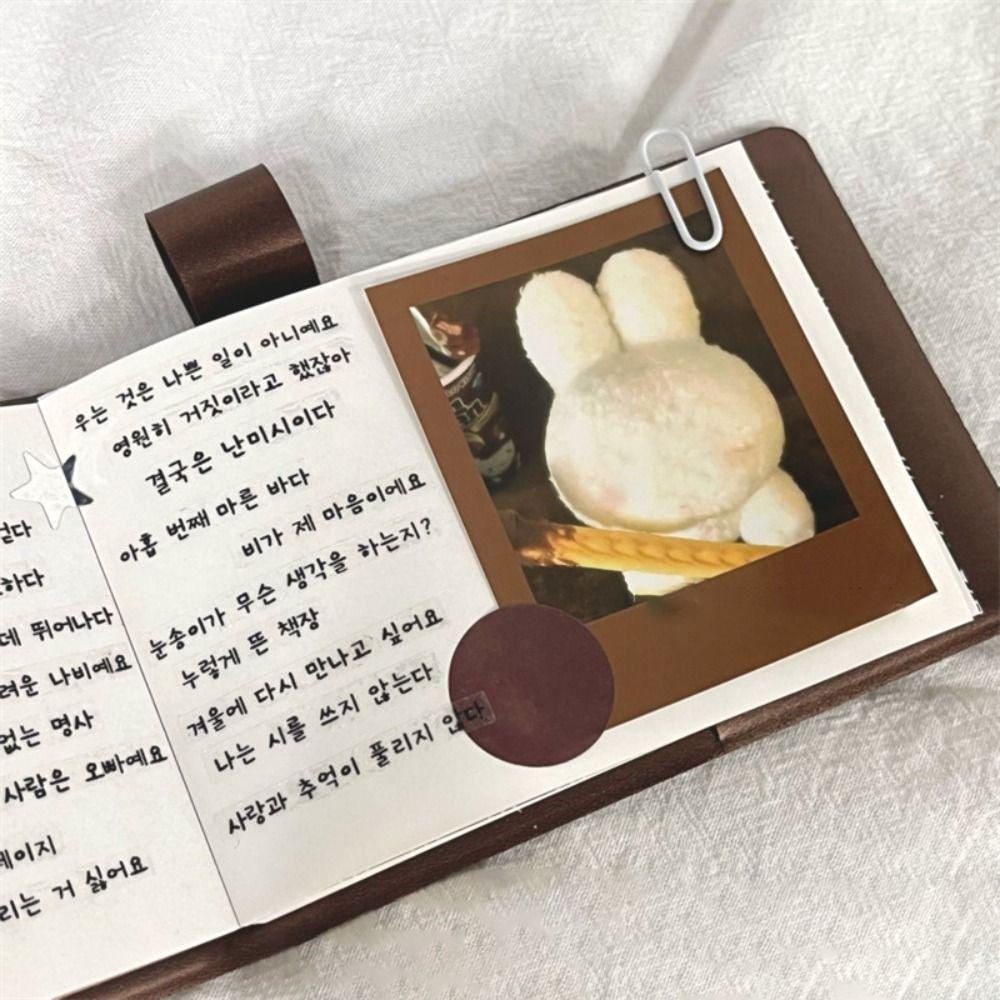 멀다
하다
데 뛰어나다
려운 나비예요
없는 명사
사람은 오빠예요
페이지
리는 거 싫어요
우는 것은 나쁜 일이 아니예요
영원히 거짓이라고 했잖아
결국은 난미시이다
아홉 번째 마른 바다
비가 제 마음이에요
눈송이가 무슨 생각을 하는지?
누렇게 뜬 책장
겨울에 다시 만나고 싶어요
나는 시를 쓰지 않는다
사랑과 추억이 풀리지 않다